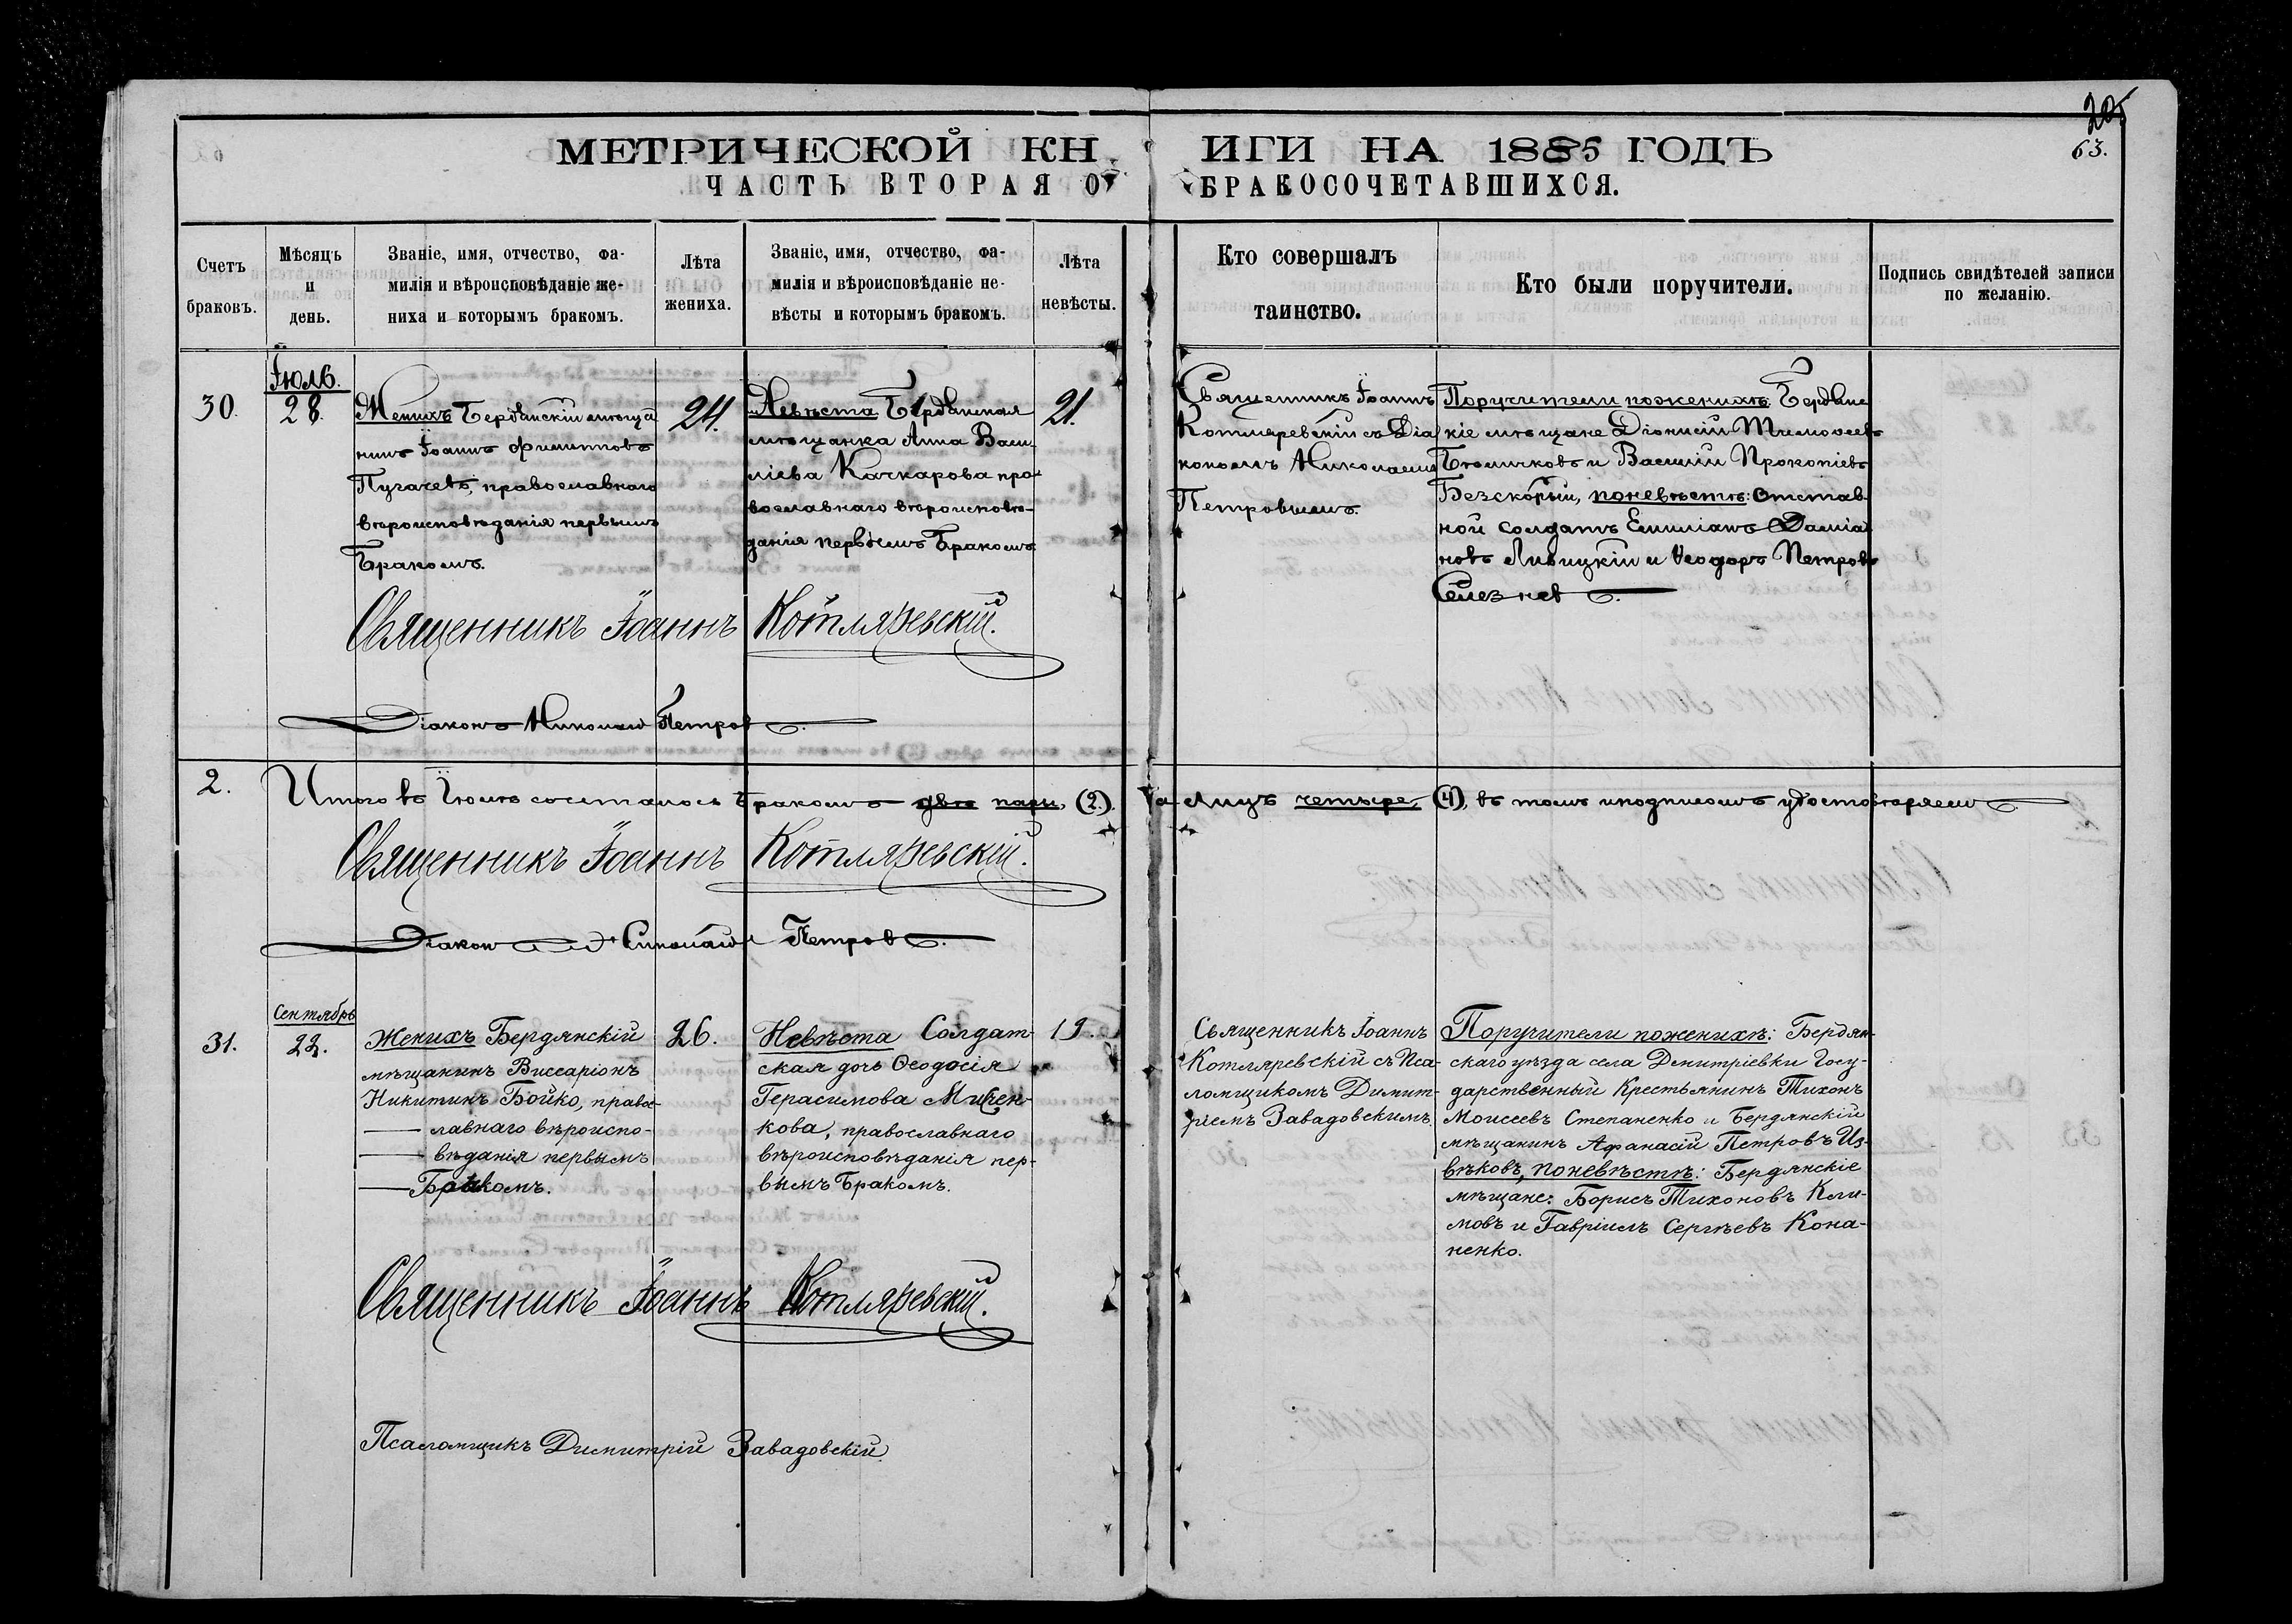 205
63.
МЕТРИЧЕСКОЙ КН
ИГИ НА 1885 ГОДЪ
ЧАСТЬ ВТОРАЯ О
БРАКОСОЧЕТАВШИХСЯ.
Счетъ
браковъ.
Мѣсяцъ
и
день.
Званіе, имя, отчество, фа-
милія и вѣроисповѣданіе же-
ниха и которымъ бракомъ.
Лѣта
жениха.
Званіе, имя, отчество, фа-
милія и вѣроисповѣданіе не-
вѣсты и которымъ бракомъ.
Лѣта
невѣсты.
Кто совершалъ
таинство.
Кто были поручители.
Подпись свидѣтелей записи
по желанію.
30.
Іюль.
28.
Женихъ Бердянскій мѣща
нинъ Іоаннъ Филипповъ
Пугачевъ, православнаго
вѣроисповѣданія первымъ
Бракомъ.
24.
Невѣста Бердянская
мѣщанка Анна Васи-
ліева Качкарова пра-
вославнаго вѣроисповѣ-
данія первымъ Бракомъ
21.
Священникъ Іоаннъ
Котляревскій съ Діа
кономъ Николаемъ
Петровымъ
Поручители по женихѣ: Бердянс
кіе мѣщане Діонисій Тимофеевъ
и Василій Прокопіевъ
Безскорый, по невѣстѣ: Отстав-
ной солдатъ Емиліанъ Даміа
новъ Ливицкій и Ѳеодоръ Петровъ
Селезневъ.
Священникъ Іоаннъ Котляревскій.
Діаконъ Николай Петровъ.
2.
Итого въ Іюлѣ сочеталось Бракомъ двѣ пары (2).
а лицъ четыре, (4), въ томъ и подписомъ удостовѣряемъ.
Священникъ Іоаннъ Котляревскій.
Діаконъ Николай Петровъ.
31.
Сентябрь
22.
Женихъ Бердянскій
мѣщанинъ Виссаріонъ
Никитинъ Бойко, право-
славнаго вѣроиспо-
вѣданія первымъ
Бракомъ.
26.
Невѣста Солдат-
ская дочь Ѳеодосія
Герасимова
кова, православнаго
вѣроисповѣданія пер-
вымъ Бракомъ.
19.
Священникъ Іоаннъ
Котляревскій съ Пса-
ломщикомъ Димит-
ріемъ Завадовскимъ.
Поручители по женихѣ: Бердян-
скаго уѣзда села Дмитріевки Госу-
дарственный Крестьянинъ Тихонъ
Моисеевъ Степаненко и Бердянскій
мѣщанинъ Афанасій Петровъ Из-
вѣковъ, по невѣстѣ: Бердянскіе
мѣщане: Борисъ Тихоновъ Кли-
мовъ и Гавріилъ Сергѣевъ Кона-
ненко.
Священникъ Іоаннъ Котляревскій.
Псаломщикъ Димитрій Завадовскій.